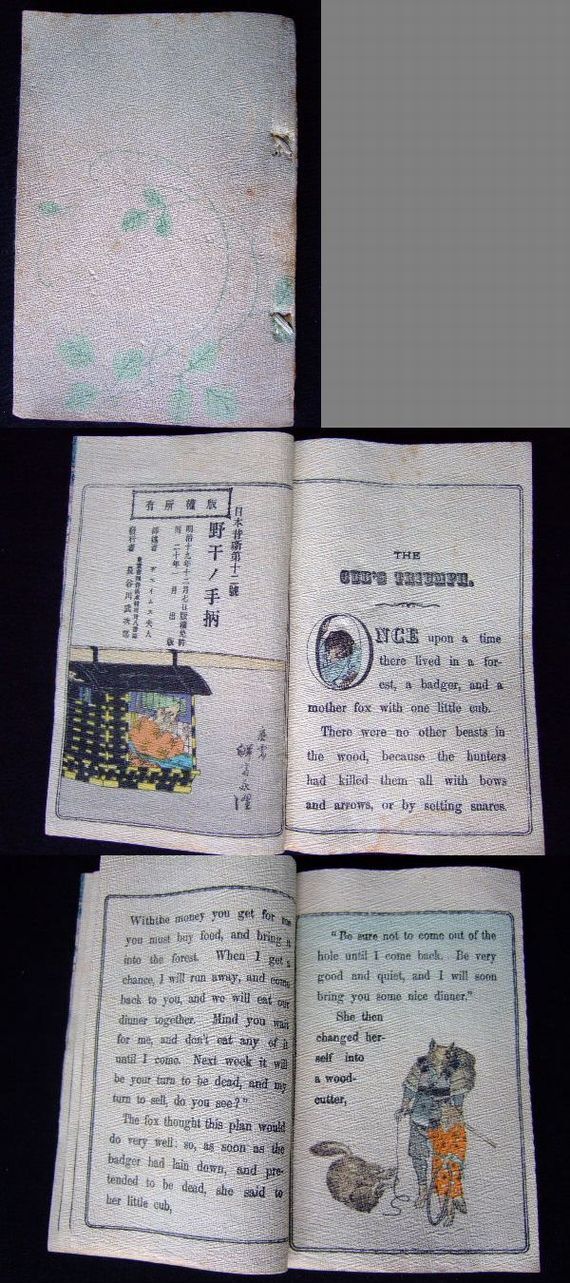 版權所有
日本昔噺第十二號
野干ノ手柄
明治十九年十二月七日版權免許
同二十年一月出版
THE
CUB'S TRIUMPH.
ONCE upon a time
there lived in a for-
est, a badger, and a
mother fox with one little cub.
There were no other beasts in
the wood, because the hunters
had killed them all with bows
and arrows, or by setting snares.
Withthe money you get for me
you must buy food, and bring it
into the forest. When I get a
chance, I will run away, and come
back to you, and we will eat our
dinner together. Mind you wait
for me, and don't eat any of it
until I come. Next week it will
be your turn to be dead, and my
turn to sell, do you see?"
The fox thought this plan would
do very well: so, as soon as the
badger had lain down, and pre-
tended to be dead, she said to
her little cub,
"Be sure not to come out of the
hole until I come back. Be very
good and quiet, and I will soon
bring you some nice dinner."
She then
changed her-
self into
a wood-
cutter,